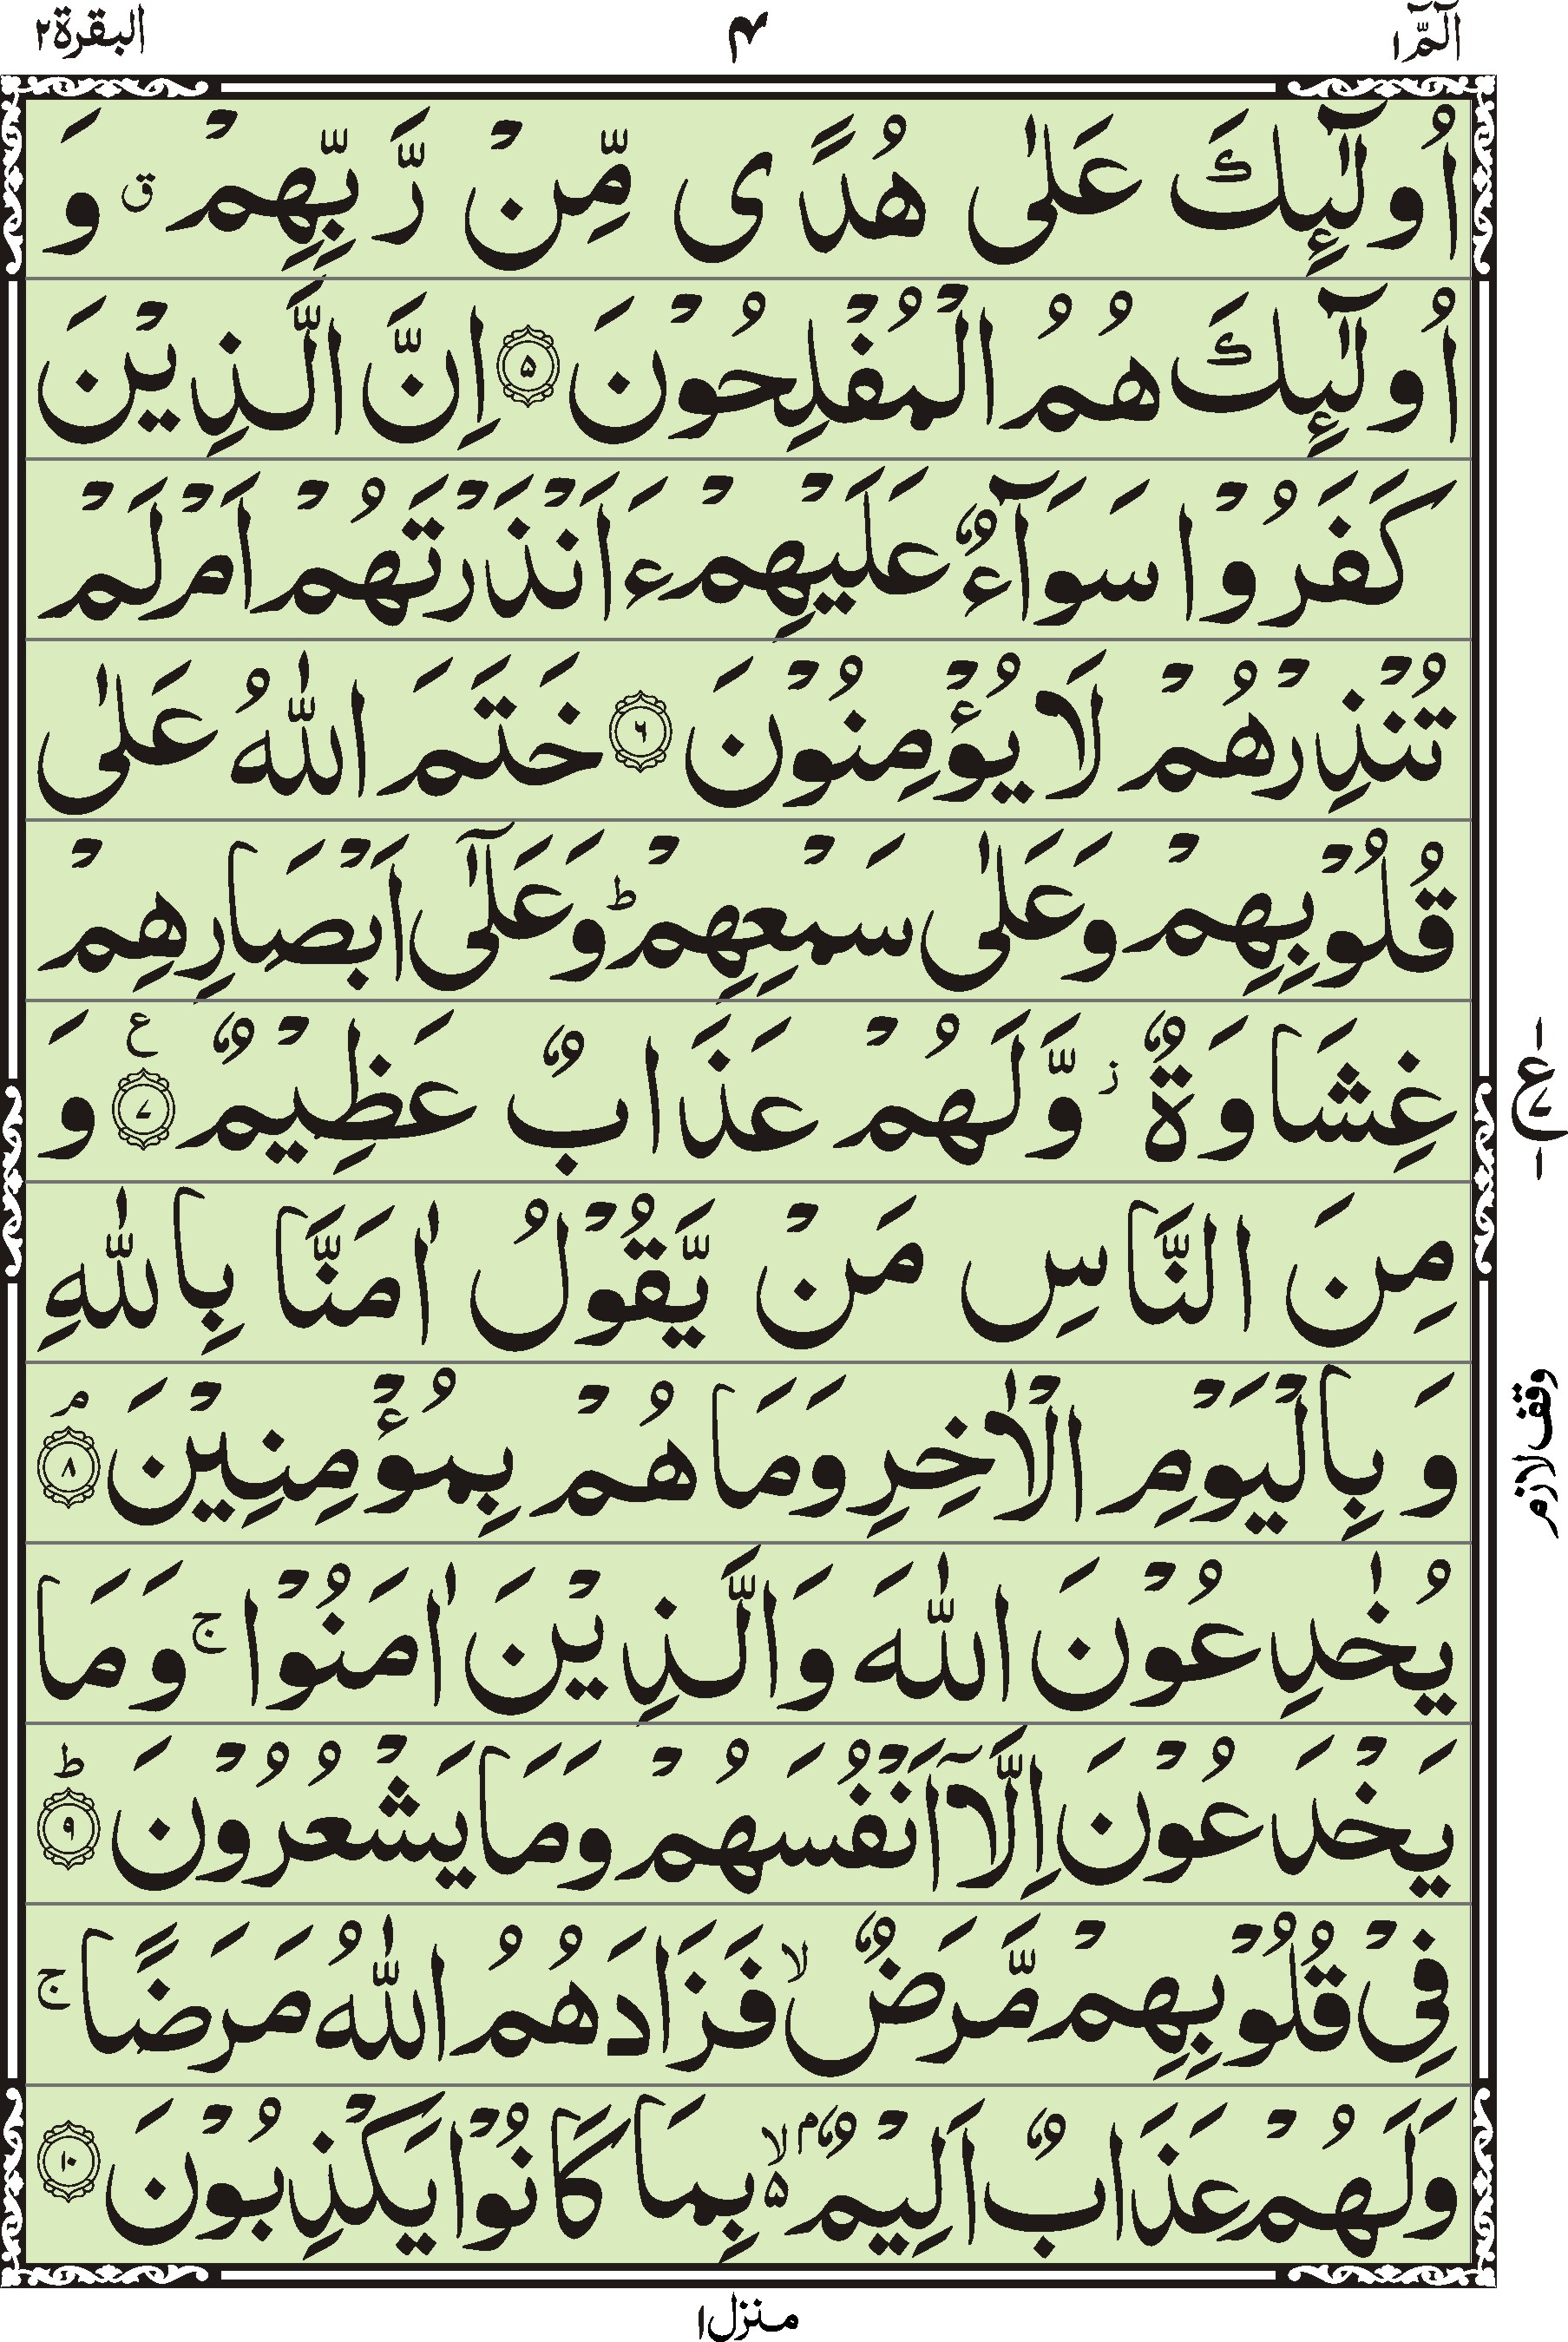 الٓمّٓ ١
٤
البقرة ٢
اُولٰٓئِكَ عَلٰى هُدًى مِّنْ رَّبِّهِمْ ۗ وَ
اُولٰٓئِكَ هُمُ الْمُفْلِحُوْنَ ۝۵ اِنَّ الَّذِيْنَ
كَفَرُوْا سَوَآءٌ عَلَيْهِمْ ءَاَنْذَرْتَهُمْ اَمْ لَمْ
تُنْذِرْهُمْ لَا يُؤْمِنُوْنَ ۝۶ خَتَمَ اللّٰهُ عَلٰى
قُلُوْبِهِمْ وَعَلٰى سَمْعِهِمْ ؕ وَعَلٰٓى اَبْصَارِهِمْ
غِشَاوَةٌ ز وَّلَهُمْ عَذَابٌ عَظِيْمٌ ۝۷ ع وَ
ع ۷
مِنَ النَّاسِ مَنْ يَّقُوْلُ اٰمَنَّا بِاللّٰهِ
وَ بِالْيَوْمِ الْاٰخِرِ وَمَا هُمْ بِمُؤْمِنِيْنَ ۝۸ ۘ
وقف لازم
يُخٰدِعُوْنَ اللّٰهَ وَالَّذِيْنَ اٰمَنُوْا ۚ وَمَا
يَخْدَعُوْنَ اِلَّاۤ اَنْفُسَهُمْ وَمَا يَشْعُرُوْنَ ۝۹ ؕ
فِيْ قُلُوْبِهِمْ مَّرَضٌ ۙ فَزَادَهُمُ اللّٰهُ مَرَضًا ۚ
وَلَهُمْ عَذَابٌ اَلِيْمٌۢ ۵ۙ بِمَا كَانُوْا يَكْذِبُوْنَ ۝۱۰
منزل ١